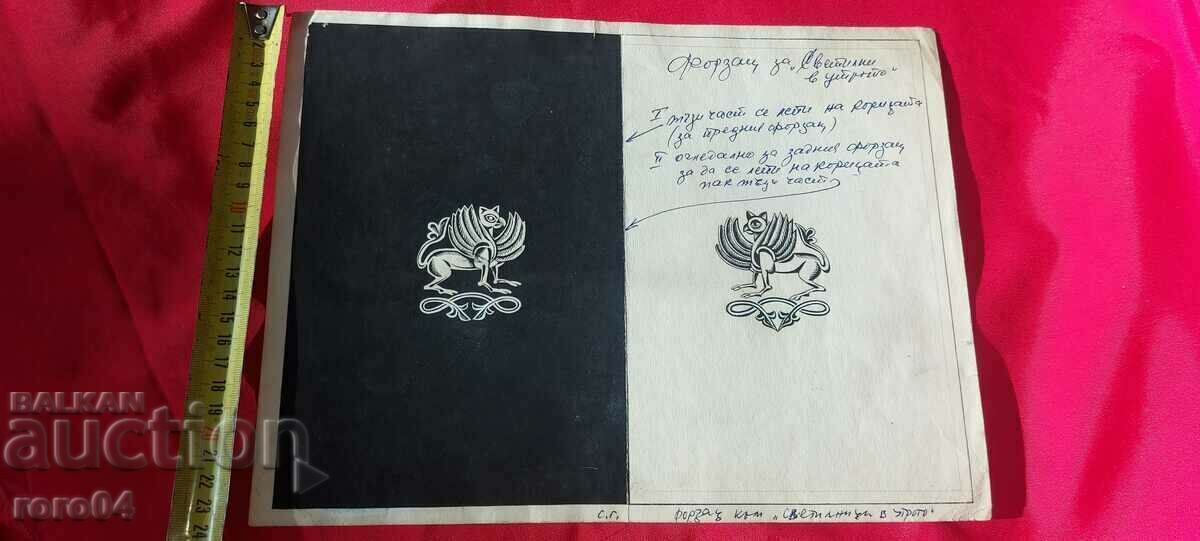 Форзац за „Светилни
в утрото“
I тъзи част се лепи на корицата
(за предния форзац)
II огледално за задния форзац
за да се лепи на корицата
пак тъзи част
с.г. форзац към „Светилници в утрото“
BALKAN
auction
roro04
2 3 4 5 6 7 8 9 10 11 12 13 14 15 16 17 18 19 21 22 23 24